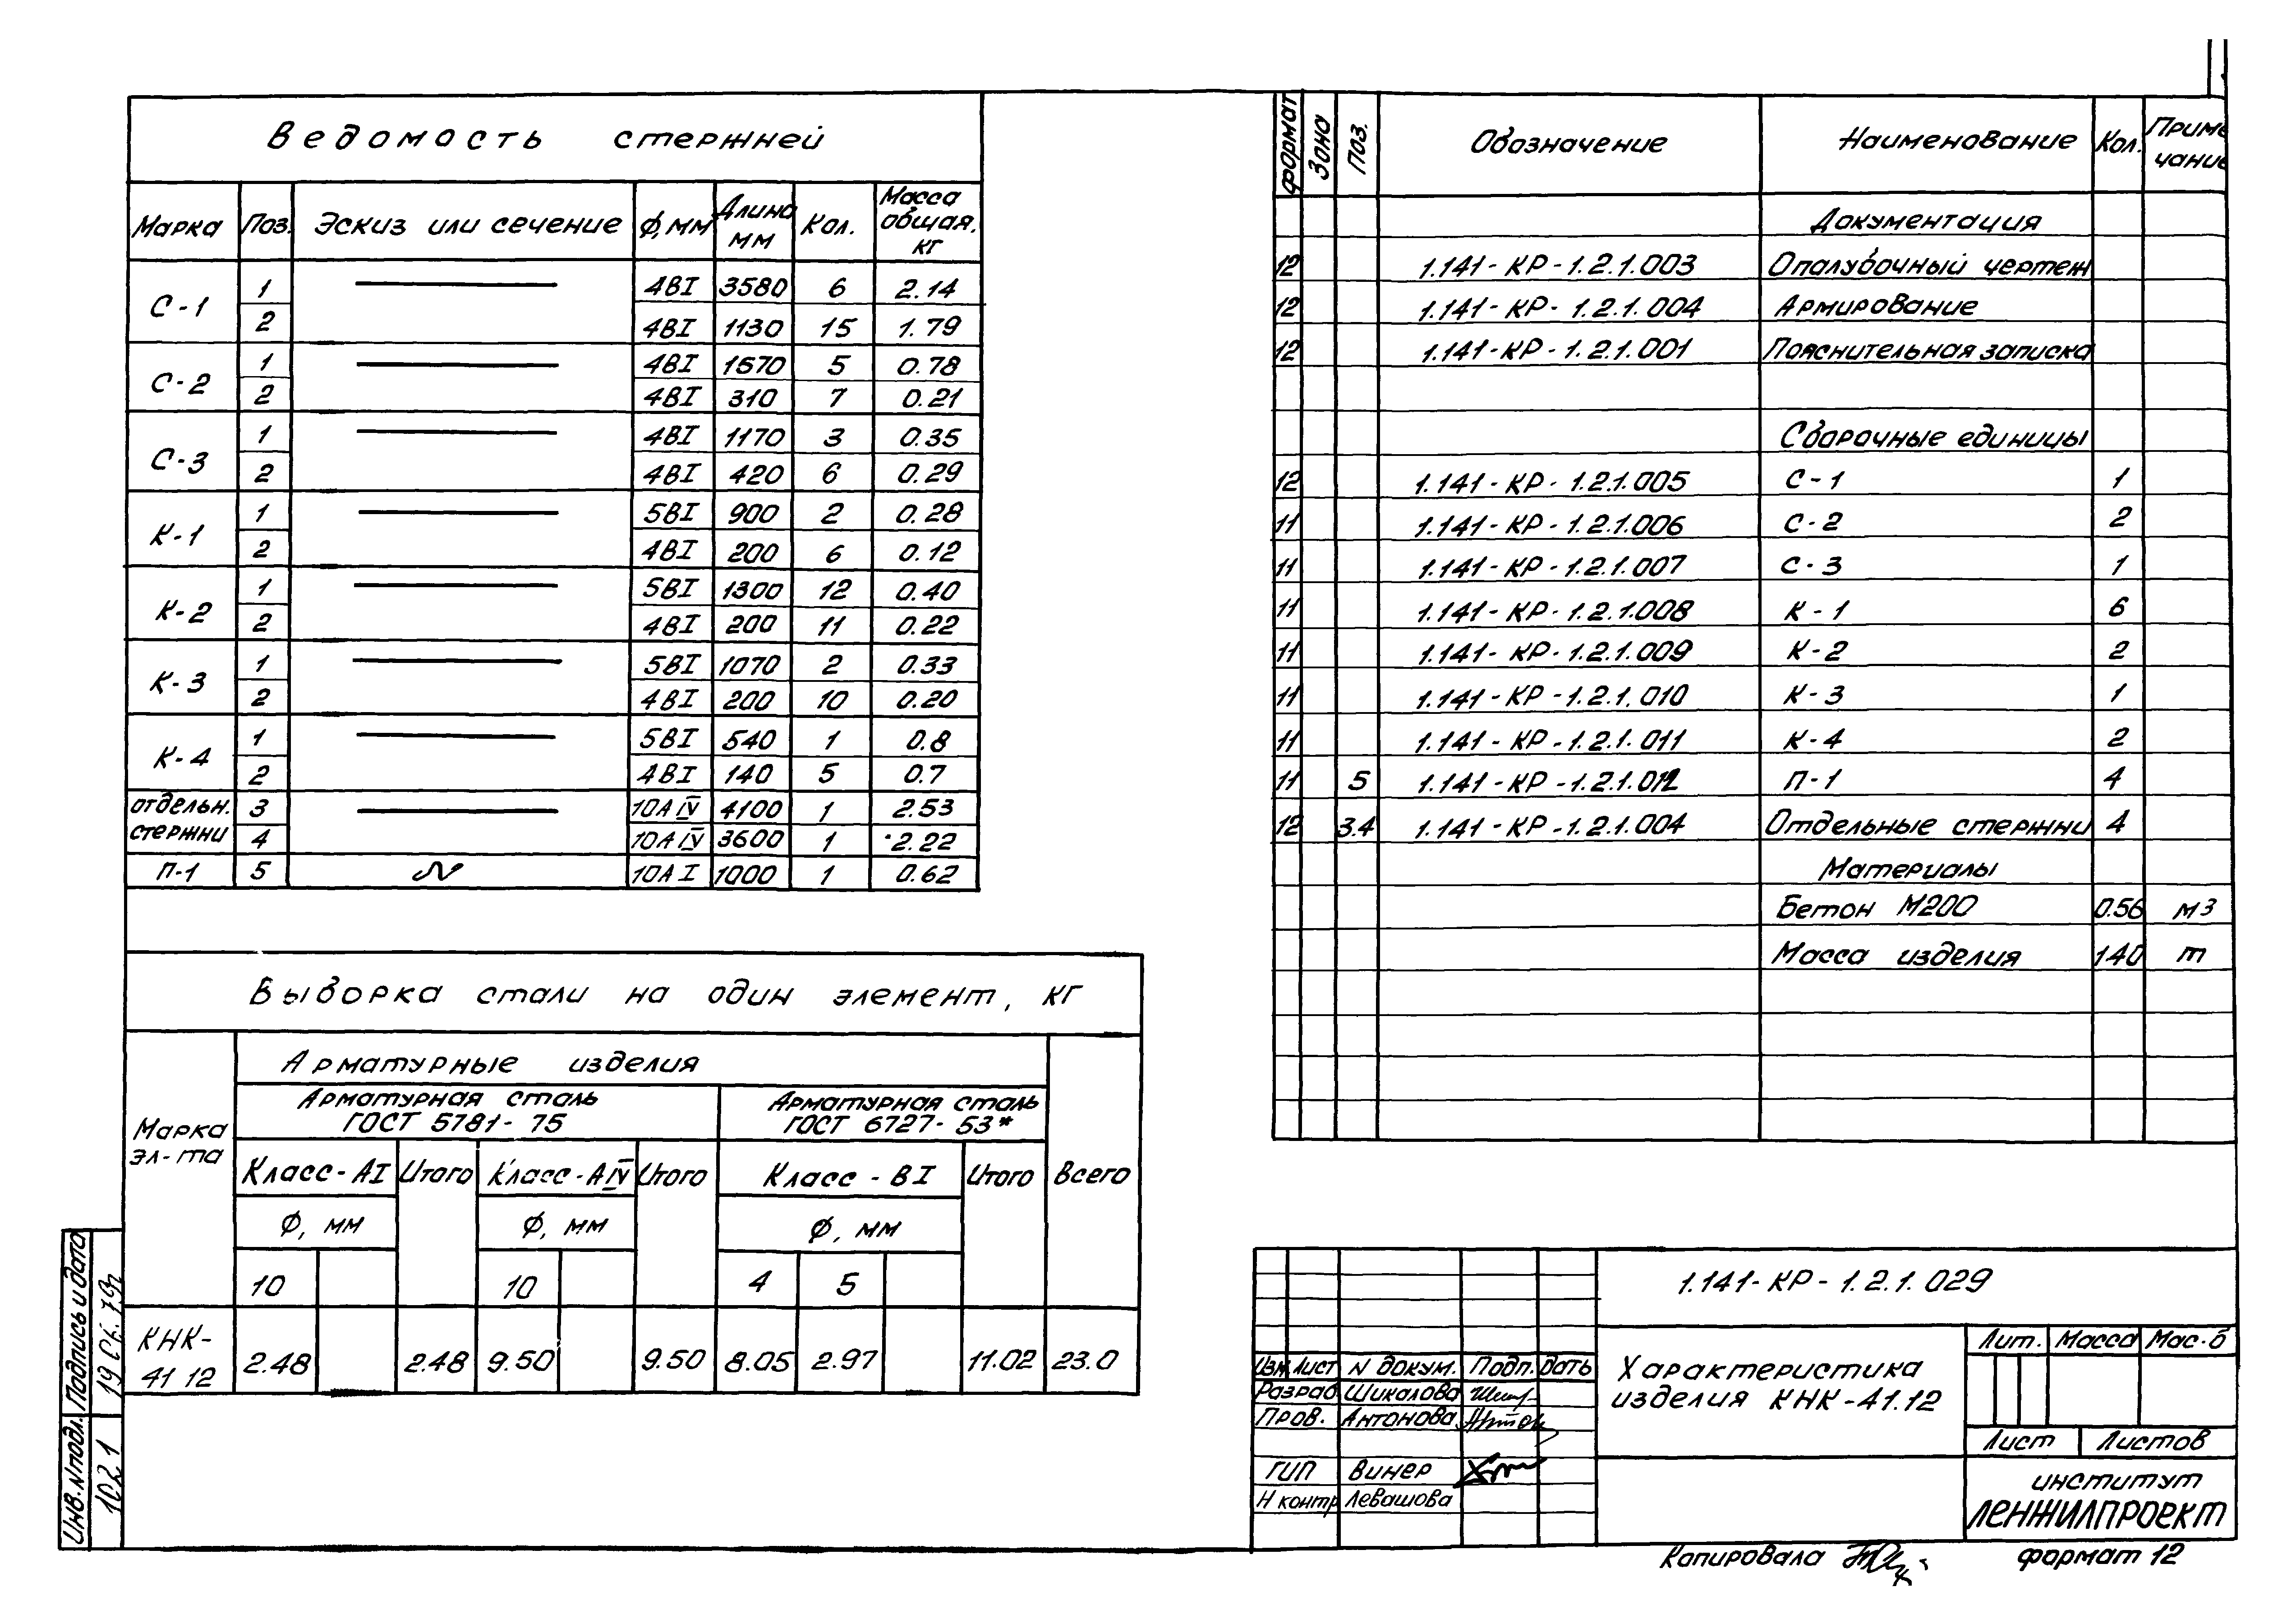 Ведомость стержней
Марка Поз. Эскиз или сечение ϕ, мм Длина мм Кол. Масса общая, кг
С-1 1 4ВI 3580 6 2.14
2 4ВI 1130 15 1.79
С-2 1 4ВI 1570 5 0.78
2 4ВI 310 7 0.21
С-3 1 4ВI 1170 3 0.35
2 4ВI 420 6 0.29
К-1 1 5ВI 900 2 0.28
2 4ВI 200 6 0.12
К-2 1 5ВI 1300 12 0.40
2 4ВI 200 11 0.22
К-3 1 5ВI 1070 2 0.33
2 4ВI 200 10 0.20
К-4 1 5ВI 540 1 0.8
2 4ВI 140 5 0.7
отдельн. стержни 3 10АIV 4100 1 2.53
4 10АIV 3600 1 2.22
П-1 5 10АI 1000 1 0.62
Выборка стали на один элемент, кг
Марка эл-та
Арматурные изделия
Всего
Арматурная сталь ГОСТ 5781-75
Арматурная сталь ГОСТ 6727-53*
Класс-АI Итого Класс-АIV Итого Класс-ВI Итого
ϕ, мм ϕ, мм ϕ, мм
10 10 4 5
КНК-41 12 2.48 2.48 9.50 9.50 8.05 2.97 11.02 23.0
формат Зона Поз. Обозначение Наименование Кол. Приме чание
Документация
12 1.141-КР-1.2.1.003 Опалубочный чертеж
12 1.141-КР-1.2.1.004 Армирование
12 1.141-КР-1.2.1.001 Пояснительная записка
Сварочные единицы
12 1.141-КР-1.2.1.005 С-1 1
11 1.141-КР-1.2.1.006 С-2 2
11 1.141-КР-1.2.1.007 С-3 1
11 1.141-КР-1.2.1.008 К-1 6
11 1.141-КР-1.2.1.009 К-2 2
11 1.141-КР-1.2.1.010 К-3 1
11 1.141-КР-1.2.1.011 К-4 2
11 5 1.141-КР-1.2.1.012 П-1 4
12 3.4 1.141-КР-1.2.1.004 Отдельные стержни 4
Материалы
Бетон М200 0.56 м3
Масса изделия 1.40 т
1.141-КР-1.2.1.029
Изм Лист N докум. Подп. дать
Разраб. Шикалова
Пров. Антонова
ГИП Винер
Н контр Левашова
Характеристика
изделия КНК-41.12
Лит. Масса Мас-б
Лист Листов
институт
ЛЕНЖИЛПРОЕКТ
Копировала
формат 12
Инв. N подл. Подпись и дата
1021